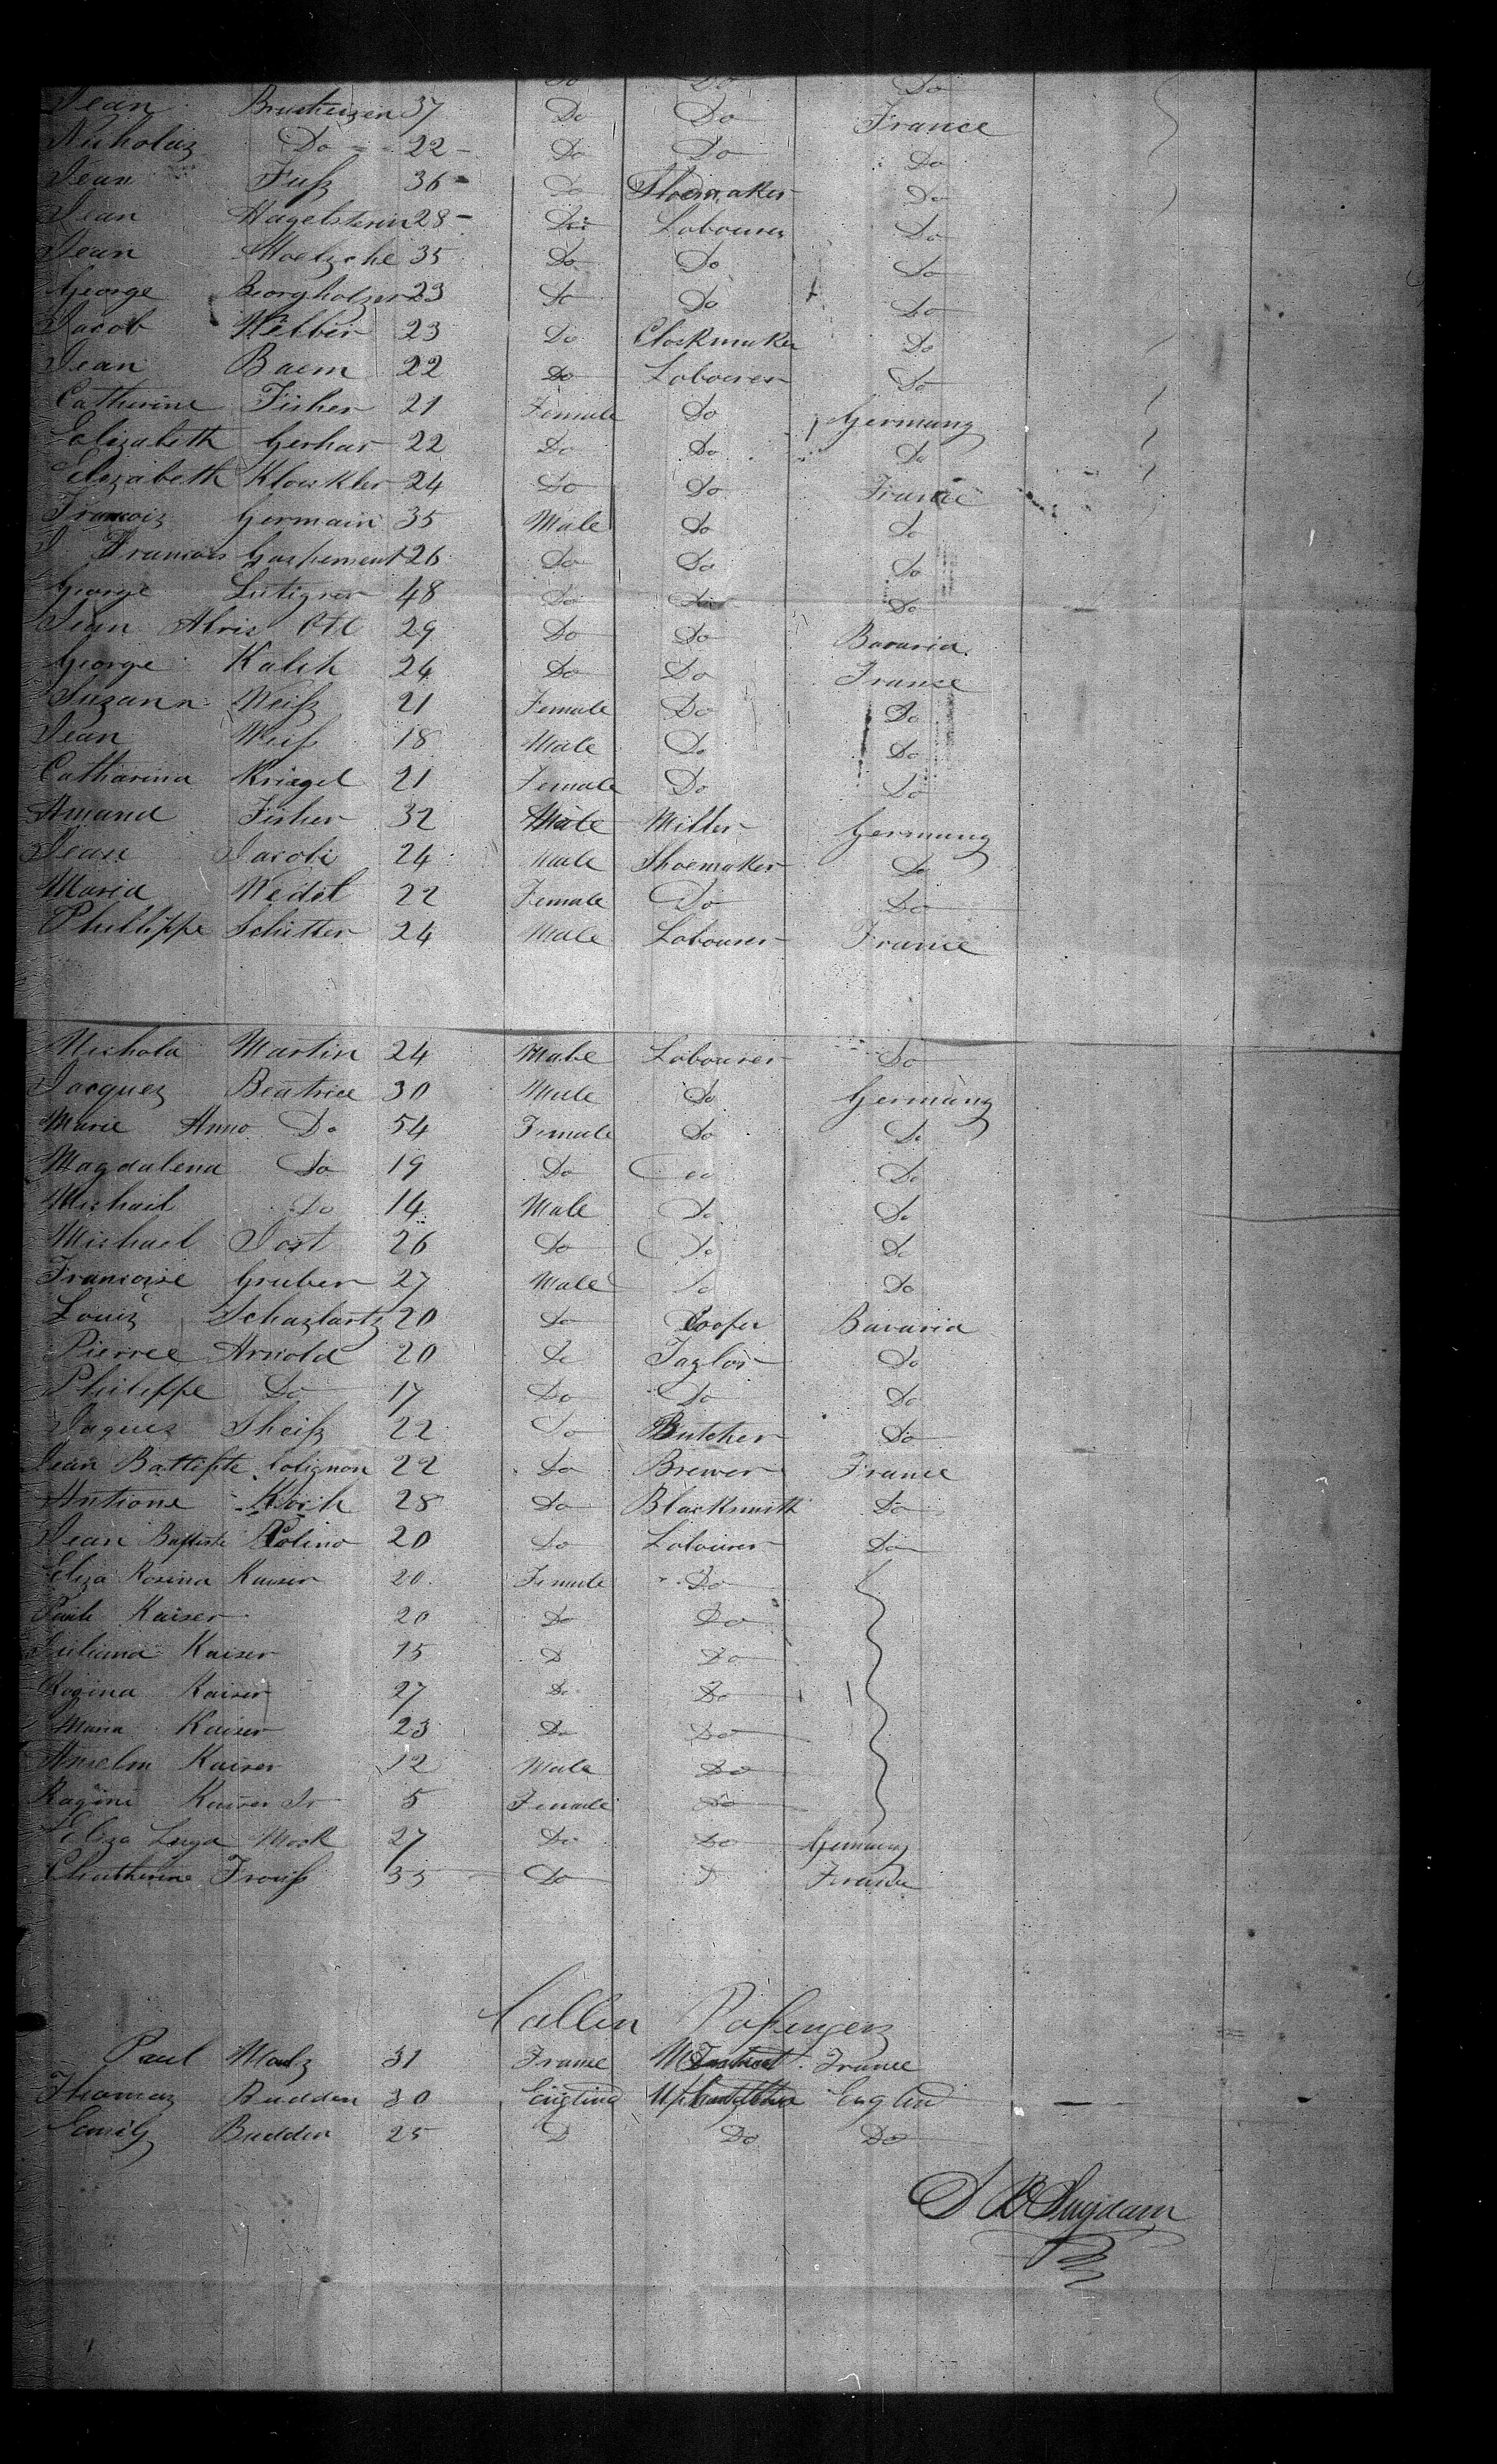 Do Do Do
Jean 37 Do Do France
Nicholaz Do 22 Do Do Do
Jean Fuß 36 Do Shoemaker Do
Jean Hagelstein 28 Do Labourer Do
Jean 35 Do Do Do
George Borgholzer 23 Do Do Do
Jacob Welber 23 Do Clockmaker Do
Jean Baem 22 Do Labourer Do
Catherine Fisher 21 Female Do Germany
Elizabeth Gerhar 22 Do Do Do
Elizabeth Kloukler 24 Do Do France
Francois Germain 35 Male Do Do
J Francois 26 Do Do Do
George Lutigner 48 Do Do Do
Jean 29 Do Do Bavaria
George Kalch 24 Do Do France
Suzann Neiß 21 Female Do Do
Jean 18 Male Do Do
Catharina Kriegel 21 Female Do Do
Amand Fisher 32 Male Miller Germany
Jean Jacobi 24 Male Shoemaker Do
Maria Wedel 22 Female Do Do
Phillippe Schitter 24 Male Labourer France
Nichola Martin 24 Male Labourer Do
Jacquez Beatrice 30 Male Do Germany
Marie Anno Do 54 Female Do Do
Magdalena Do 19 Do Do
Michail Do 14 Male Do Do
Michael Jost 26 Do Do Do
Francoise Gruber 27 Male Do Do
Louiz 20 Do Coofer Bavaria
Pierree Arnold 20 Do Taylor Do
Philippe Do 17 Do Do Do
Jaquez Theiß 22 Do Butcher Do
Jean Battiste Colignon 22 Do Brewer France
Antione Koch 28 Do Blacksmith Do
Jean Baptiste Colino 20 Do Labourer Do
Eliza Rosina Kaiser 20 Female Do
Kaiser 20 Do Do
Juliana Kaiser 15 D Do
Rogina Kaiser 27 Do Do
Maria Kaiser 23 Do Do
Anselm Kaiser 12 Male Do
Ragine Kaiser Jr 5 Female Do
Eliza Mock 27 Do Do Germany
Chatherine 33 Do D France
Cabbin Passengers
Paul 31 France France
Thomaz Budden 30 England England
Emily Budden 25 D Do Do